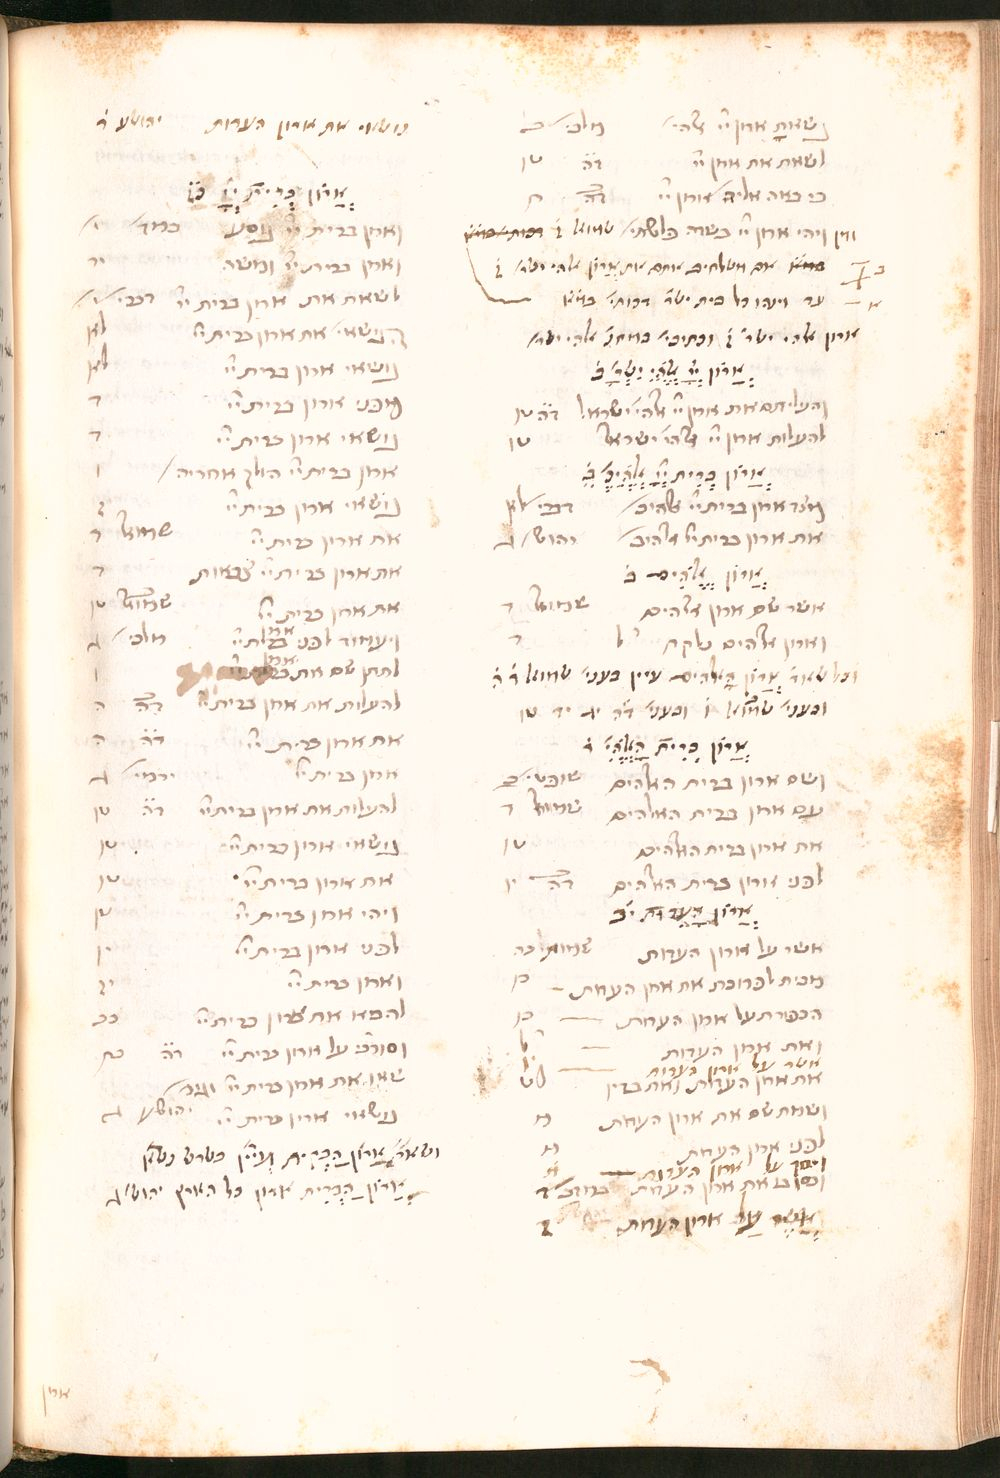 נשאת את ארון יי' אלהי' מלכי' ב
לשאת את ארון יי' דה' טו
כי באה אליה' ארון יי' דה' ח
ויהי ארון יי' בשדה פלשתי' שמוא' ו
אם משלחים אתם את ארון אלהי ישר' ו
ארון אלהי ישר'
אֲרוֹן יְיָ אֱלֹהֵי יִשְׂרָ' ב
והעליתם את ארון יי' אלהי ישראל דה' טו
להעלות ארון יי' אלהי ישראל טו
אֲרוֹן בְּרִית יְיָ אֱלֹהֵיכֶ' ב
מצד ארון ברית יי' אלהיכ' דברי' לא
את ארון ברית יי' אלהיכ' יהוש' ג
אֲרוֹן אֱלֹהִים ב
אשר שם ארון אלהים שמואל ד
וארון אלהים נלקח ד
וכל שאר אֲרוֹן הָאלהים עיין בעני' שמוא' ד ה
ובעני' שמוא' ו ובעני' דה' יג יד טו
אֲרוֹן בְּרִית הָאֱלֹהִי' ד
ושם ארון ברית האלהים שופטי' כ
עם ארון ברית האלהים שמואל ד
את ארון ברית האלהים טו
לפני ארון ברית האלהים דה' יו
אֲרוֹן הָעֵדֻת יב
אשר על ארון העדות שמות כה
מבית לפרוכת את ארון העדות כו
הכפורת על ארון העדות כו
ואת ארון העדות ל
אשר על ארון העדות ל
את ארון העדות ואת בדיו לט
ושמת שם את ארון העדות מ
לפני ארון העדות מ
ויסך על ארון העדות מ
וכסו בה את ארון העדות במדב' ד
אֲשֶׁר עַל ארון העדות ז
נושאי את ארון העדות יהושע ד
אֲרוֹן בְּרִית יְיָ
וארון ברית יי' נוסע במד' י
וארון ברית יי' ומשה יד
לשאת את ארון ברית יי' דברי' י
הנושאי' את ארון ברית יי' לא
נושאי ארון ברית יי' לא
מפני ארון ברית יי' ד
נושאי ארון ברית יי' ד
ארון ברית יי' הולך אחריה' ו
נושאי ארון ברית יי' ג
את ארון ברית יי' שמואל ד
את ארון ברית יי' צבאות ד
את ארון ברית יי' שמואל טו
ויעמוד לפני ארון ברית יי' מלכי' ג
לתתן שם את ארון ברית יי' ו
להעלות את ארון ברית יי' דה' ה
את ארון ברית יי' דה' ה
ארון ברית יי' ירמי' ג
להעלות את ארון ברית יי' דה' טו
נושאי ארון ברית יי' טו
את ארון ברית יי' טו
ויהי ארון ברית יי' טו
לפני ארון ברית יי' יו
וארון ברית יי' יז
להביא את ארון ברית יי' כב
וסוככי' על ארון ברית יי' דה' כח
שאו את ארון ברית יי'
נושאי ארון ברית יי' יהושע ג
ושאר אֲרוֹן הַבְּרִית עיין בשרש נשא
אֲרוֹן הַבְּרִית ארון כל הארץ יהוש' ג
ארון